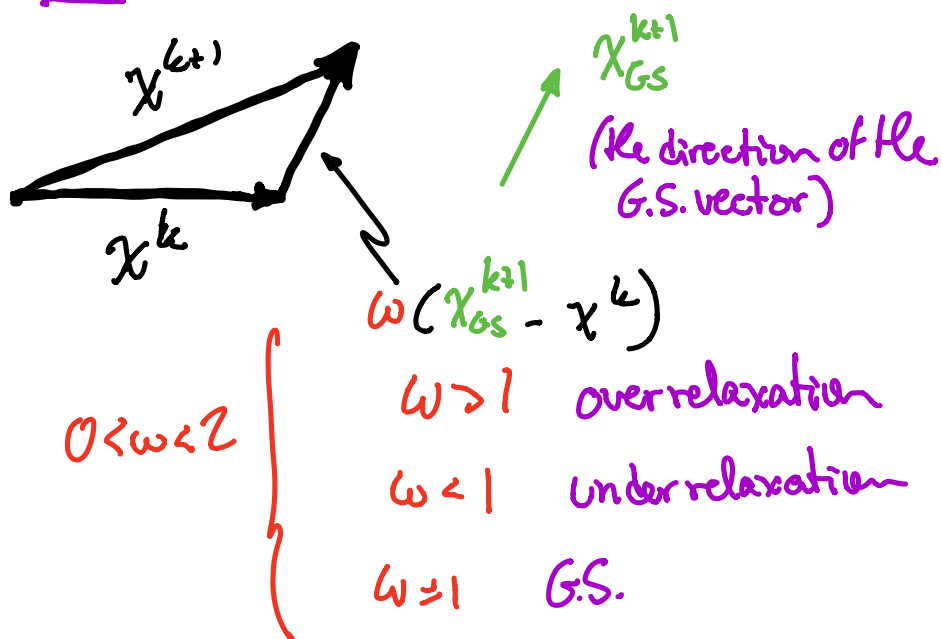 x^{k+1}
x_{GS}^{k+1}
(the direction of the
G.S. vector)
x^k
ω(x_{GS}^{k+1} - x^k)
0<ω<2
ω>1 overrelaxation
ω<1 underrelaxation
ω=1 G.S.